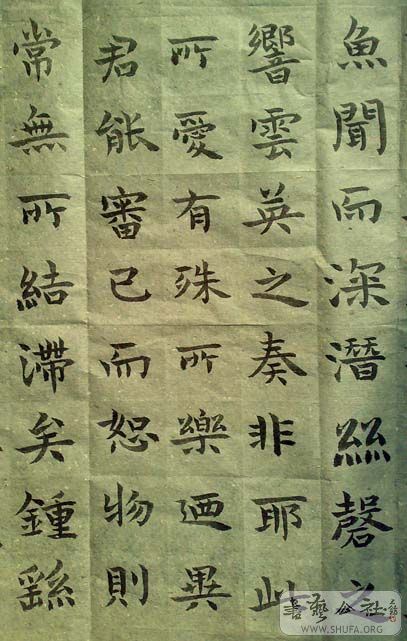 魚聞而深潛絲磬之
響雲英之奏非耶此
所愛有殊所樂迺異
君能審己而恕物則
常無所結滯矣鍾繇
書藝公社
WWW.SHUFA.ORG